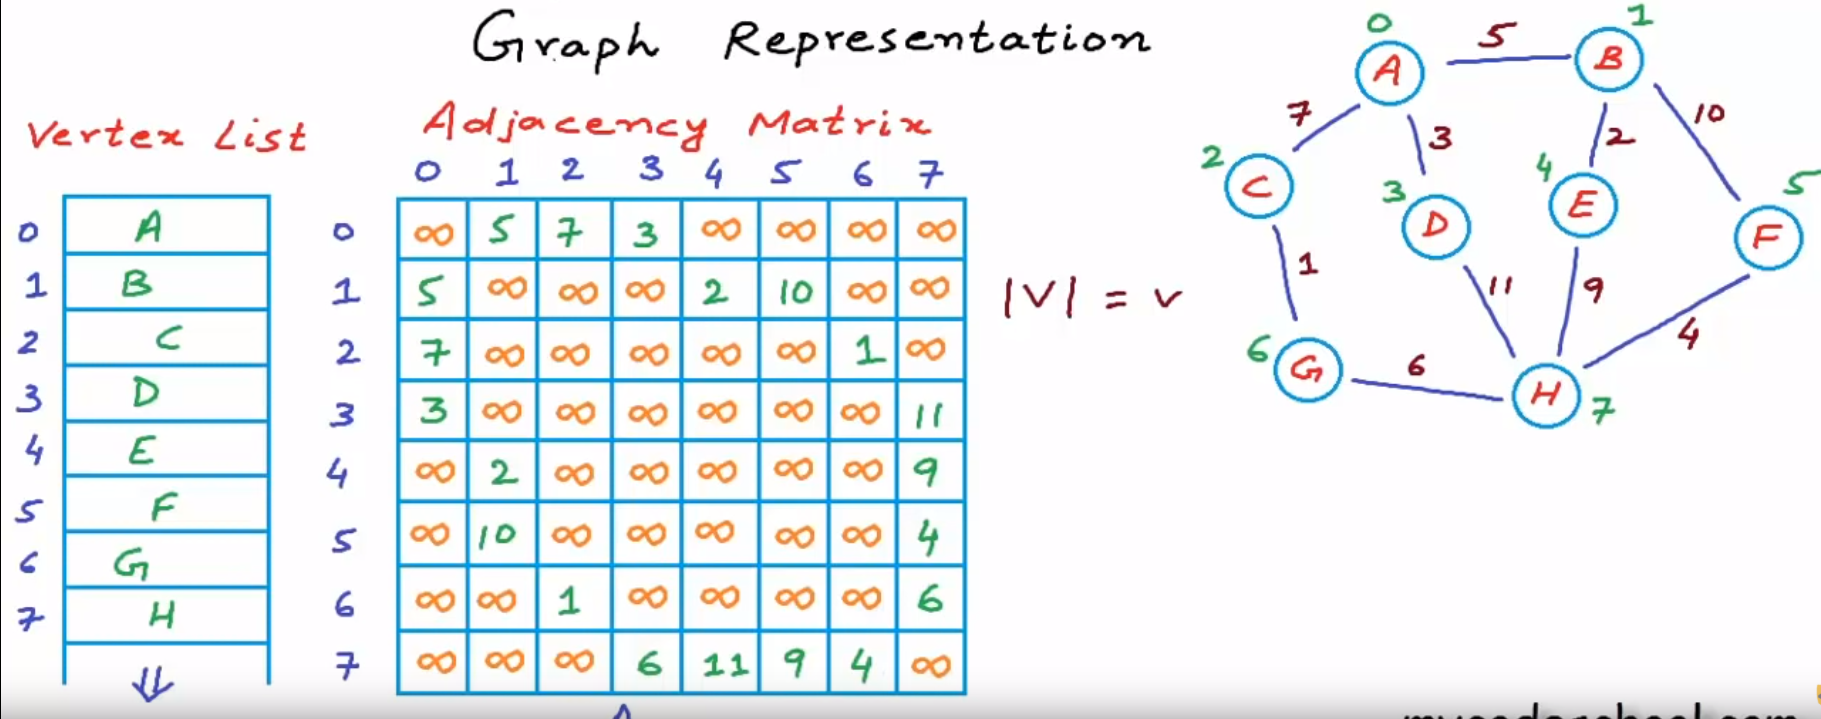 Graph Representation
Vertex List
0 A
1 B
2 C
3 D
4 E
5 F
6 G
7 H
Adjacency Matrix
0 1 2 3 4 5 6 7
0 ∞ 5 7 3 ∞ ∞ ∞ ∞
1 5 ∞ ∞ ∞ 2 10 ∞ ∞
2 7 ∞ ∞ ∞ ∞ ∞ 1 ∞
3 3 ∞ ∞ ∞ ∞ ∞ ∞ 11
4 ∞ 2 ∞ ∞ ∞ ∞ ∞ 9
5 ∞ 10 ∞ ∞ ∞ ∞ ∞ 4
6 ∞ ∞ 1 ∞ ∞ ∞ ∞ 6
7 ∞ ∞ ∞ 6 11 9 4 ∞
|V| = v
0 1
A 5 B
7 3 2 10
2 C 3 D 4 E 5 F
1 11 9 4
6 G 6 H 7